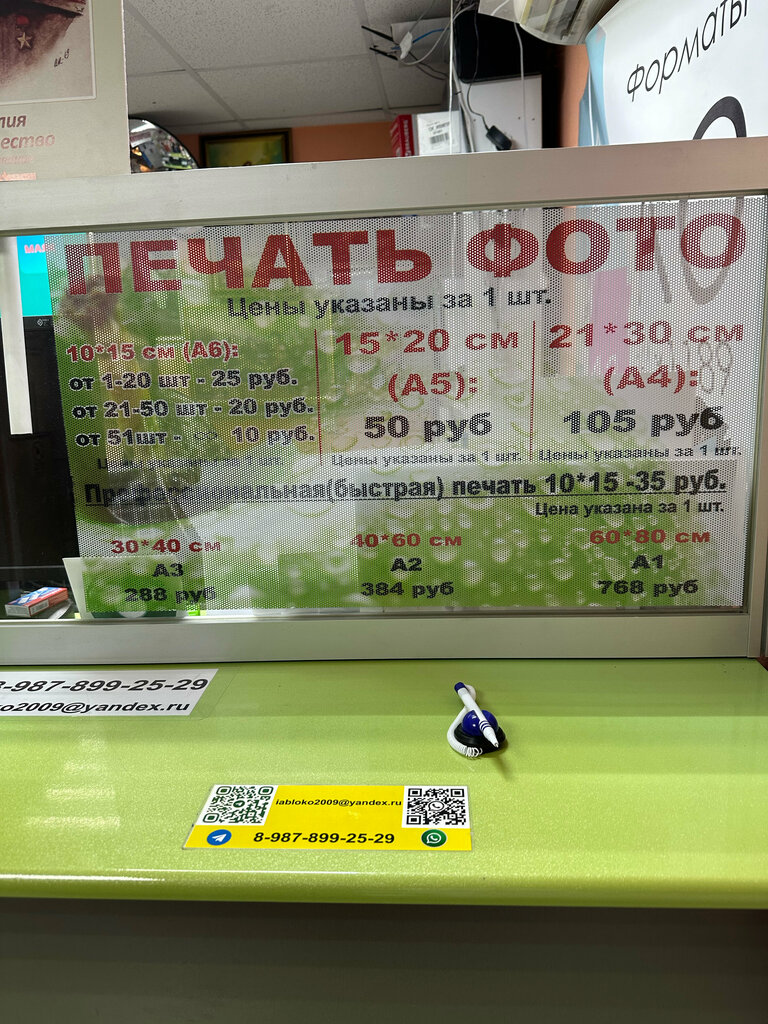 Форматы
ество
ПЕЧАТЬ ФОТО
Цены указаны за 1 шт.
10*15 см (А6):
от 1-20 шт - 25 руб.
от 21-50 шт - 20 руб.
от 51шт - 10 руб.
Цены указаны за 1 шт.
15*20 см
(А5):
50 руб
Цены указаны за 1 шт.
21*30 см
(А4):
105 руб
Цены указаны за 1 шт.
Профессиональная(быстрая) печать 10*15 -35 руб.
Цена указана за 1 шт.
30*40 см
А3
288 руб
40*60 см
А2
384 руб
60*80 см
А1
768 руб
8-987-899-25-29
ko2009@yandex.ru
iabloko2009@yandex.ru
8-987-899-25-29